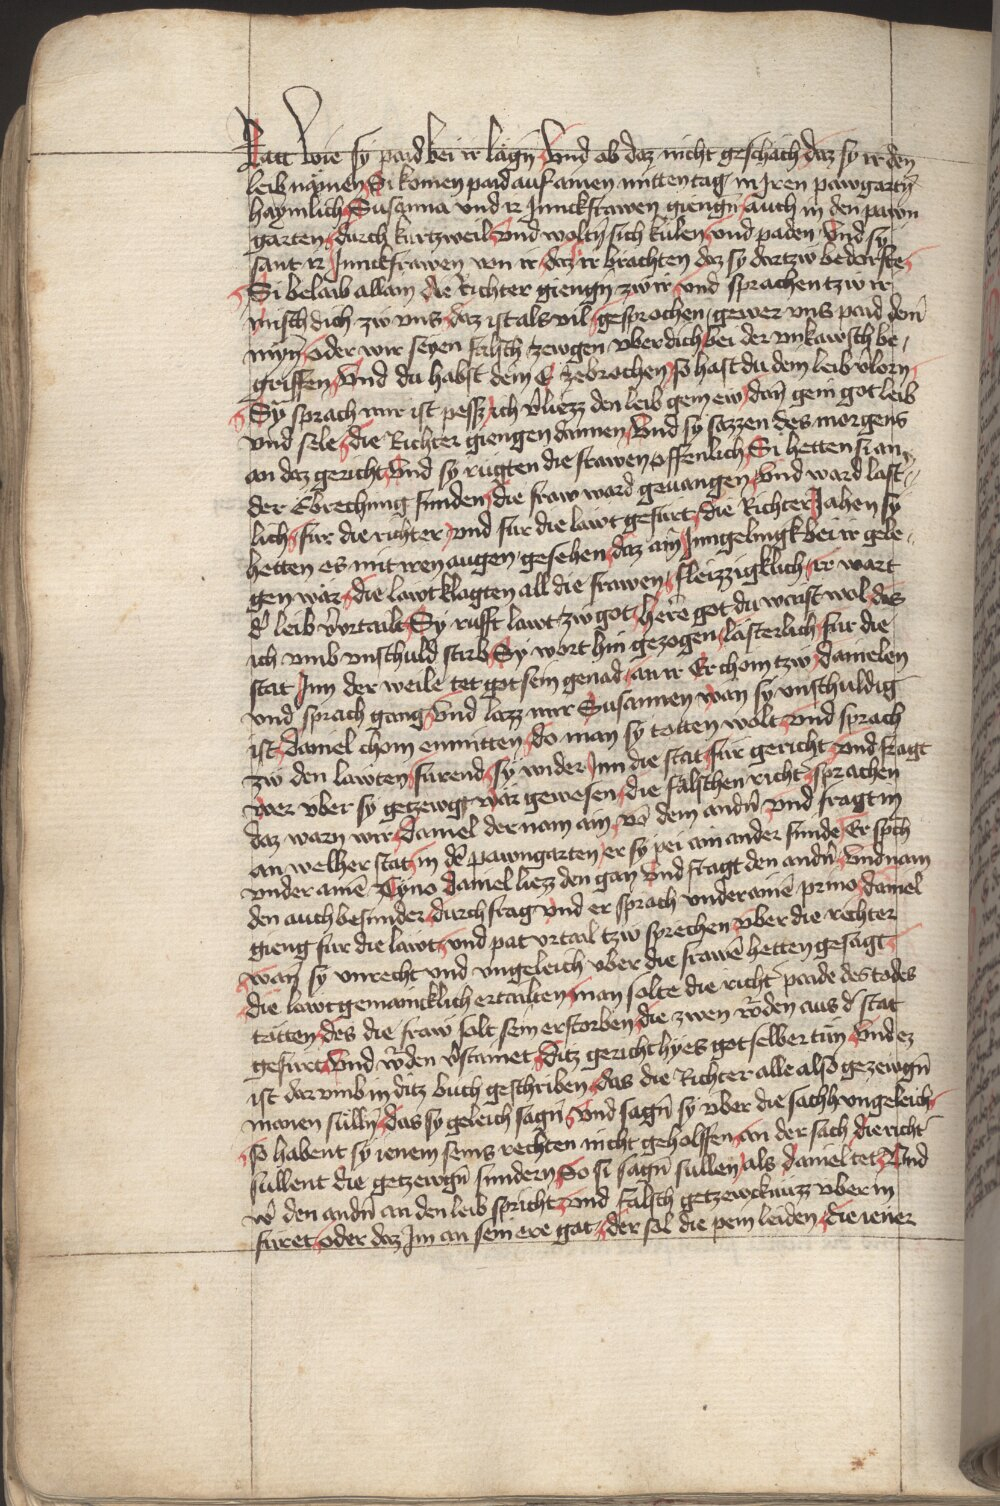 Ratt Wie sy paid bei ir lägn̄ Vnd ab daz nicht geschäch daz sy ir den
leib nämen Si komen paid auf ainen mittentag in Iren pawgartn̄
haymlich Susanna vnd ir Junckfrawen giengn̄ auch in den pawn
garten durch kurtzweil vnd woltn̄ sich kűlen vnd paden Vnd sy
sant ir Junckfrawen von ir daz ir brachten daz sy dartzw bedorfte
Si belaib allain die Richter giengn̄ zw ir vnd sprachen tzw ir
misch dich zw vns daz ist als vil gesprochen gewer vns paid den̄
myn̄ oder wir seyen falsch zewgen vber dich bei der vnkawsch be,
griffen Vnd du habst dein E zebrochen so hast du dem leib v̄lorn
Sy sprach mir ist pessz ich v̄liezz den leib gem ew dan̄ gein got leib
vnd sele die Richter giengen dannen Vnd sy sazzen des morgens
an daz gericht Vnd sy rűgten die frawen offenlich Si hetten si an
der Ebrechung funden die fraw ward geuangen Vnd ward last,
lich fűr die richter vnd fur die läwt gefűrt die Richter Jahen sy
hetten es mit iren augen gesehen daz ain Jungelingk bei ir gele,
gen wär die läwt klagten all die frawen fleizzigklich ir wart
d̄ leib v̄urtailt Sy rufft lawt zw got here got du waist wol das
ich vmb vnschuld stirb Sy wort hin gezogen lästerlich fur die
stat Inn der weile tet got sein genad an ir Er chom tzw danielen
vnd sprach gang Vnd lazz mir Susannen wan sy vnschuldig
ist daniel chom enmitten do man sy totten wolt vnd sprach
zw den läwten fűrend sy wider Inn die stat fűr gericht vnd fragt
wer vber sy getzewgt wär gewesen die fälschen richt̄ sprachen
daz warn wir Daniel der nam ain vō dem andn̄ vnd fragt in
an welher stat in dē pawngarten er sy pei ain ander funde Er spch̄
vnder ainē Cyno daniel liezz den gan Vnd fragt den andn̄ Vnd nam
den auch besunder durch frag vnd er sprach vnder ainē prino daniel
gieng fűr die läwt vnd pat vrtail tzw sprechen vber die richter
wan̄ sy vnrecht vnd vngeleich vber die frawē hetten gesagt
die läwt gemaincklich ertailten man solte die richt̄ paide des todes
tőtten des die fraw solt sein erstorben die zwen w̄den aus d̄ stat
gefűrt Vnd w̄den v̄stainet Ditz gericht hyes got selber tűn Vnd ez
ist dar vmb in ditz buch geschriben das die Richter alle also gezewgn̄
manen sűlln̄ das sy geleich sagn̄ Vnd sagn̄ sy vber die sach vngeleich
so habent sy ienem seins rechten nicht geholffen an der sach die richt̄
sűllent die getzewgn̄ sundern So si sagn̄ sullen als daniel tet Vnd
w̄ den andn̄ an den leib spricht vnd falsch getzewcknűzz vber in
fűret oder daz Im an sein ere gat der sol die pein leiden die iener